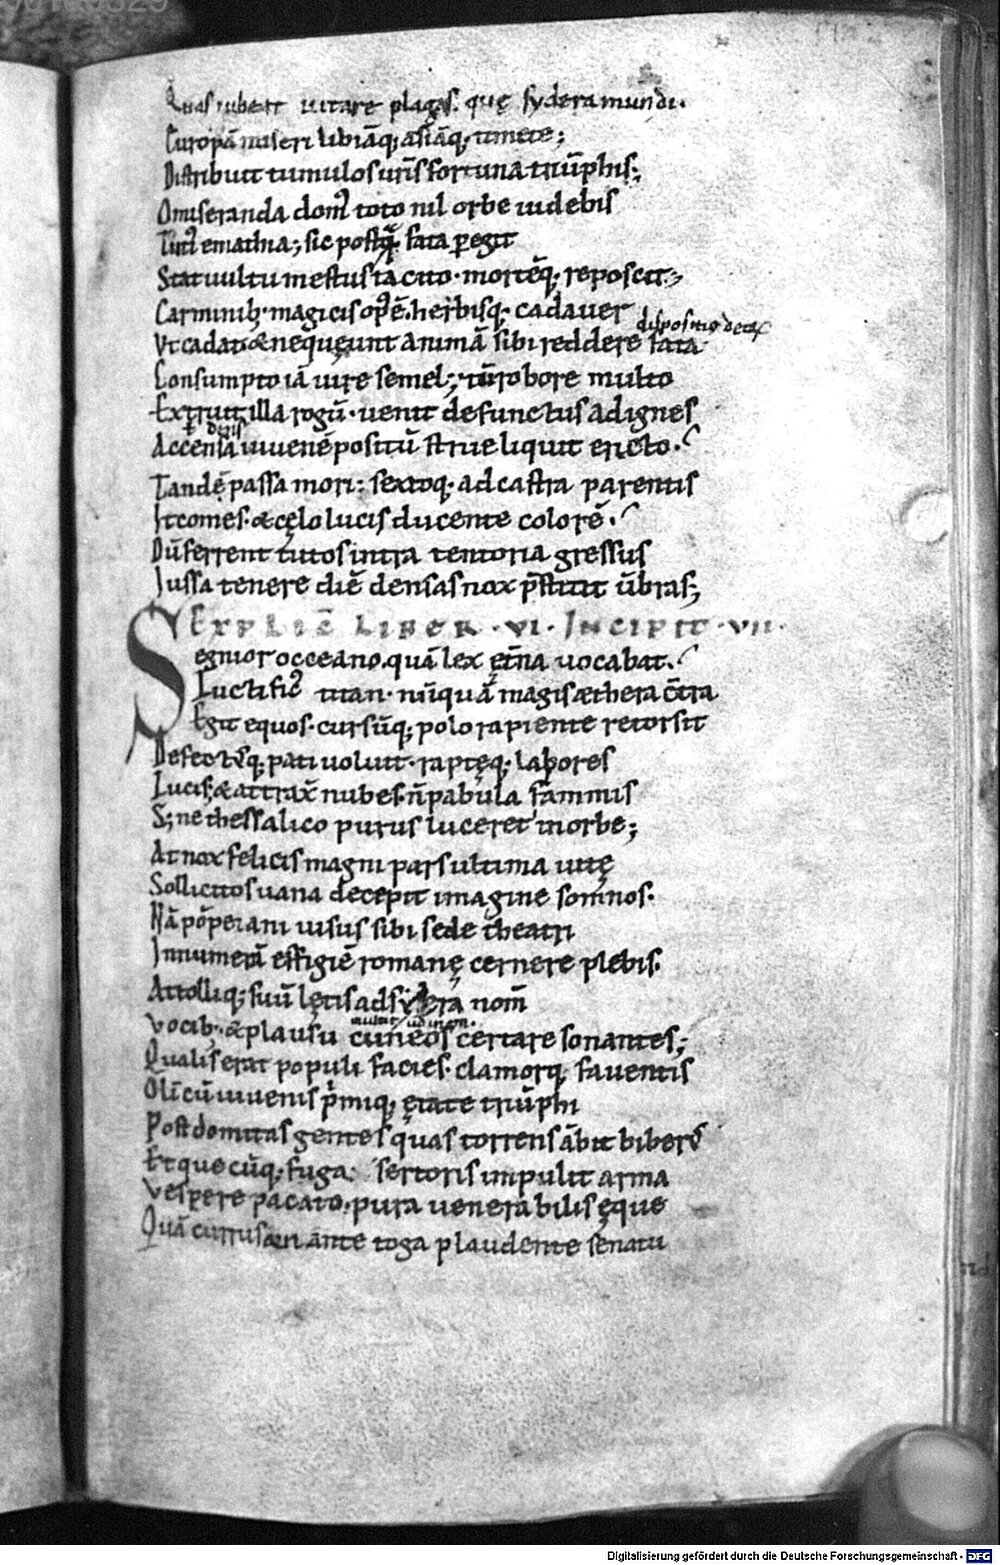 Quas iubeat uitare plagas. quę sydera mundi.
Europā miseri libiāq; asiāq; timete;
Distribuit tumulos ur̄is fortuna triūphis;
O miseranda dom᷒ toto nil orbe uidebis
Tuti᷒ emathia; sic postq̄. fata ꝑegit
Stat uultu mestus tacito. mortēq; reposcit;
Carminib; magicis op᷒ ē. herbisq; cadauer
dispositio
Vt cadat. & nequeunt animā sibi reddere fata
Consumpto iā iure semel; tūc robore multo
Extruit illa rogū. uenit defunctus ad ignes
Accensa iuuenē positū strue liquit ericto.
Tandē passa mori; sextoq; ad castra parentis
It comes. & cęlo lucis ducente colorē.
Dū ferrent tutos intra tentoria gressus
Iussa tenere diē densas nox p̄stitit ūbras;
EXPLIC̄ LIBER .VI. INCIPIT .VII.
Segnior occeano. quā lex ęt̄na uocabat.
Luctific᷒ titan. nūquā magis æthera c̄tra
Egit equos. cursūq; polo rapiente retorsit
Defectusq; pati uoluit. raptęq; labores
Lucis; & attrax̄ nubes. n̄ pabula flāmis
S; ne thessalico purus luceret in orbe;
At nox felicis magni pars ultima uitę
Sollicitos uana decepit imagine somnos.
Nā pōpeiani uisus sibi sede theatri
Innumerā effigiē romanę cernere plebis.
Attolliq; suū lętis ad sydera nom̄
Vocib; & plausu cuneos certare sonantes;
Qualis erat populi facies. clamorq; fauentis
Olī cū iuuenis p̄miq; ętate triūphi
Post domitas gentes quas torrens ābit hiberus
Et quecūq; fuga. sertoris impulit arma
Vespere pacato. pura uenerabilis ęque
Quā currus ante toga plaudente senatu
Digitalisierung gefördert durch die Deutsche Forschungsgemeinschaft - DFG